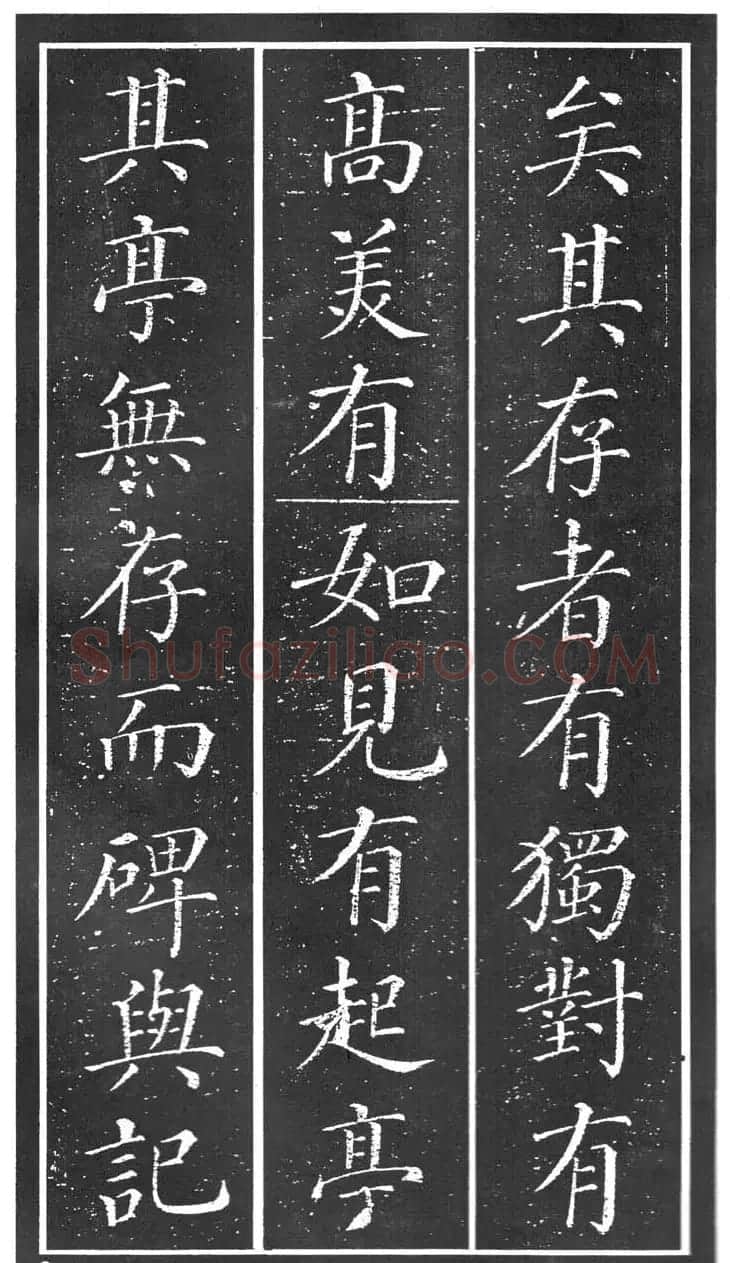 矣其存者有獨對有
髙美有如見有起亭
其亭無存而碑與記
Shufaziliao.COM